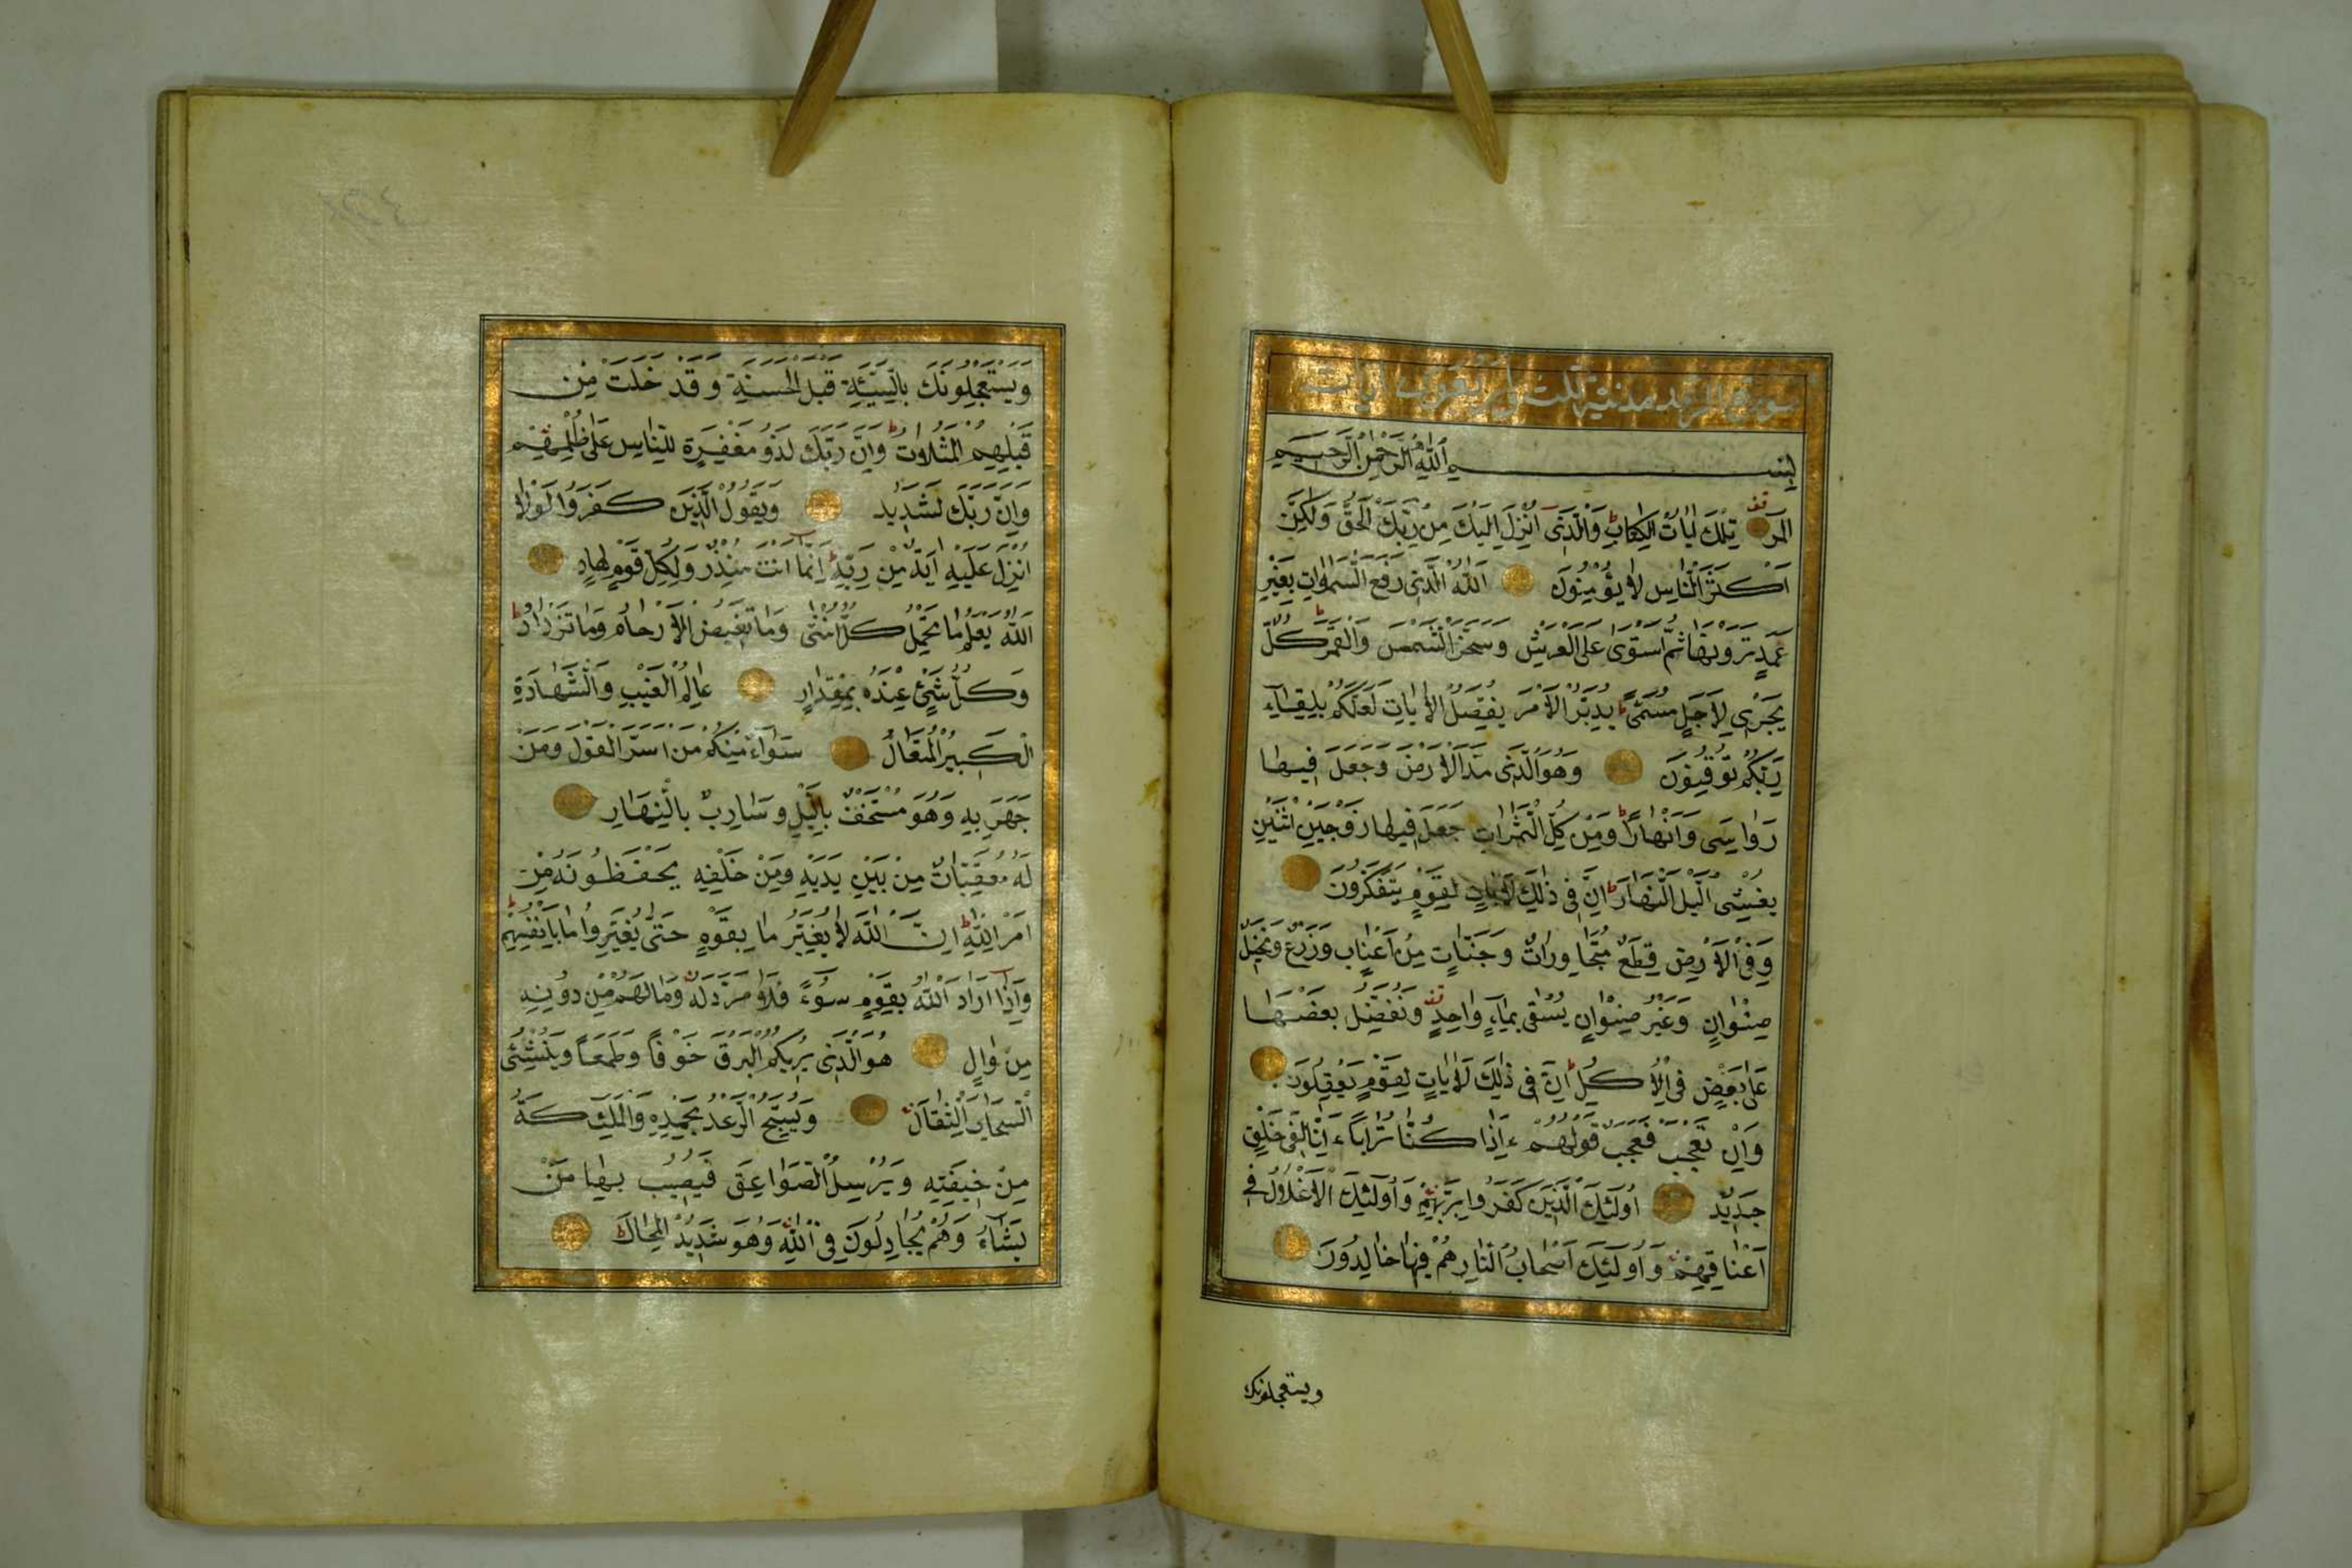 سورة الرعد مدنية ثلث واربعون ايات
بِسْمِ اللّٰهِ الرَّحْمٰنِ الرَّحِيمِ
المر تِلْكَ اٰيَاتُ الْكِتَابِ وَالَّذِى اُنْزِلَ اِلَيْكَ مِنْ رَبِّكَ الْحَقُّ وَلٰكِنَّ
اَكْثَرَ النَّاسِ لَا يُؤْمِنُونَ اَللّٰهُ الَّذِى رَفَعَ السَّمٰوَاتِ بِغَيْرِ
عَمَدٍ تَرَوْنَهَا ثُمَّ اسْتَوٰى عَلَى الْعَرْشِ وَسَخَّرَ الشَّمْسَ وَالْقَمَرَ كُلٌّ
يَجْرِى لِاَجَلٍ مُسَمًّى يُدَبِّرُ الْاَمْرَ يُفَصِّلُ الْاٰيَاتِ لَعَلَّكُمْ بِلِقَاءِ
رَبِّكُمْ تُوقِنُونَ وَهُوَ الَّذِى مَدَّ الْاَرْضَ وَجَعَلَ فِيهَا
رَوَاسِىَ وَاَنْهَارًا وَمِنْ كُلِّ الثَّمَرَاتِ جَعَلَ فِيهَا زَوْجَيْنِ اثْنَيْنِ
يُغْشِى الَّيْلَ النَّهَارَ اِنَّ فِى ذٰلِكَ لَاٰيَاتٍ لِقَوْمٍ يَتَفَكَّرُونَ
وَفِى الْاَرْضِ قِطَعٌ مُتَجَاوِرَاتٌ وَجَنَّاتٌ مِنْ اَعْنَابٍ وَزَرْعٌ وَنَخِيلٌ
صِنْوَانٌ وَغَيْرُ صِنْوَانٍ يُسْقٰى بِمَاءٍ وَاحِدٍ وَنُفَضِّلُ بَعْضَهَا
عَلٰى بَعْضٍ فِى الْاُكُلِ اِنَّ فِى ذٰلِكَ لَاٰيَاتٍ لِقَوْمٍ يَعْقِلُونَ
وَاِنْ تَعْجَبْ فَعَجَبٌ قَوْلُهُمْ ءَاِذَا كُنَّا تُرَابًا ءَاِنَّا لَفِى خَلْقٍ
جَدِيدٍ اُولٰئِكَ الَّذِينَ كَفَرُوا بِرَبِّهِمْ وَاُولٰئِكَ الْاَغْلَالُ فِى
اَعْنَاقِهِمْ وَاُولٰئِكَ اَصْحَابُ النَّارِ هُمْ فِيهَا خَالِدُونَ
ويستعجلونك
وَيَسْتَعْجِلُونَكَ بِالسَّيِّئَةِ قَبْلَ الْحَسَنَةِ وَقَدْ خَلَتْ مِنْ
قَبْلِهِمُ الْمَثُلَاتُ وَاِنَّ رَبَّكَ لَذُو مَغْفِرَةٍ لِلنَّاسِ عَلٰى ظُلْمِهِمْ
وَاِنَّ رَبَّكَ لَشَدِيدُ وَيَقُولُ الَّذِينَ كَفَرُوا لَوْلَا
اُنْزِلَ عَلَيْهِ اٰيَةٌ مِنْ رَبِّهِ اِنَّمَا اَنْتَ مُنْذِرٌ وَلِكُلِّ قَوْمٍ هَادٍ
اَللّٰهُ يَعْلَمُ مَا تَحْمِلُ كُلُّ اُنْثٰى وَمَا تَغِيضُ الْاَرْحَامُ وَمَا تَزْدَادُ
وَكُلُّ شَىْءٍ عِنْدَهُ بِمِقْدَارٍ عَالِمُ الْغَيْبِ وَالشَّهَادَةِ
الْكَبِيرُ الْمُتَعَالُ سَوَاءٌ مِنْكُمْ مَنْ اَسَرَّ الْقَوْلَ وَمَنْ
جَهَرَ بِهِ وَهُوَ مُسْتَخْفٍ بِالَّيْلِ وَسَارِبٌ بِالنَّهَارِ
لَهُ مُعَقِّبَاتٌ مِنْ بَيْنِ يَدَيْهِ وَمِنْ خَلْفِهِ يَحْفَظُونَهُ مِنْ
اَمْرِ اللّٰهِ اِنَّ اللّٰهَ لَا يُغَيِّرُ مَا بِقَوْمٍ حَتّٰى يُغَيِّرُوا مَا بِاَنْفُسِهِمْ
وَاِذَا اَرَادَ اللّٰهُ بِقَوْمٍ سُوءً فَلَا مَرَدَّ لَهُ وَمَا لَهُمْ مِنْ دُونِهِ
مِنْ وَالٍ هُوَ الَّذِى يُرِيكُمُ الْبَرْقَ خَوْفًا وَطَمَعًا وَيُنْشِئُ
السَّحَابَ الثِّقَالَ وَيُسَبِّحُ الرَّعْدُ بِحَمْدِهِ وَالْمَلٰئِكَةُ
مِنْ خِيفَتِهِ وَيُرْسِلُ الصَّوَاعِقَ فَيُصِيبُ بِهَا مَنْ
يَشَاءُ وَهُمْ يُجَادِلُونَ فِى اللّٰهِ وَهُوَ شَدِيدُ الْمِحَالِ